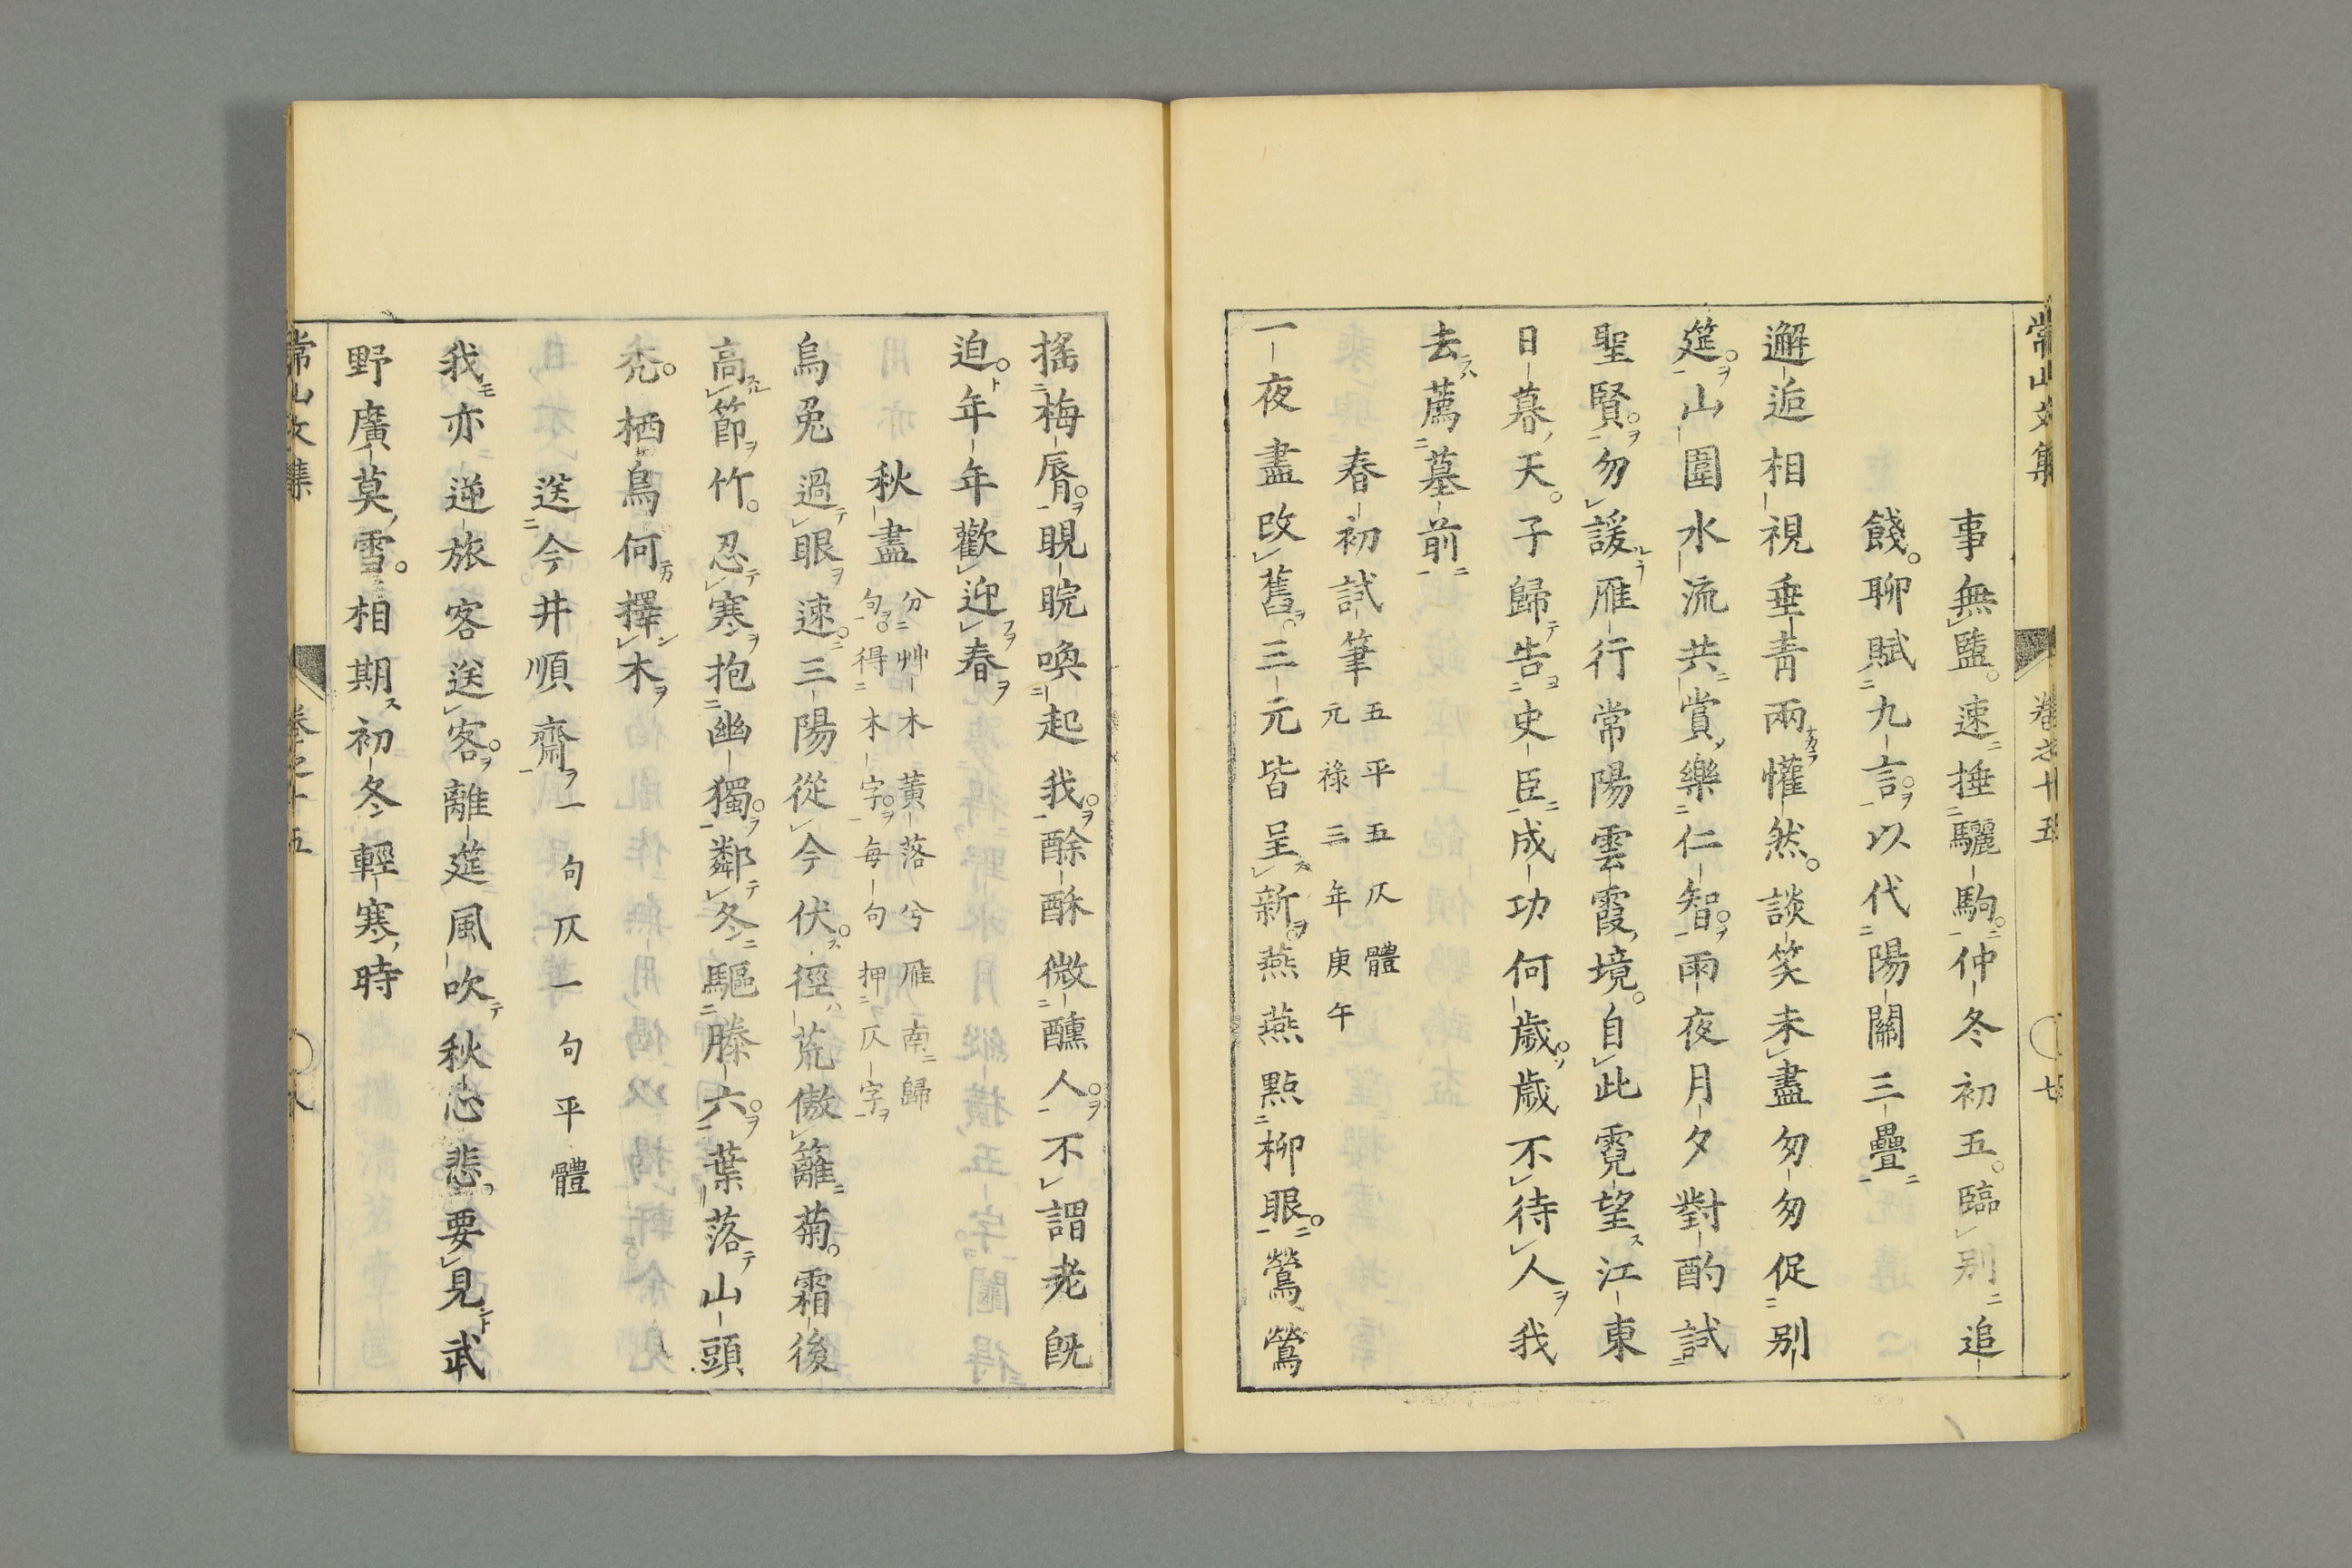 常山文集 卷之十五 七
事無盬速捶驪駒仲冬初五臨別追
餞聊賦九言以代陽關三疊
邂逅相視垂青兩懽然談笑未盡匆匆促別
筵山圍水流共賞樂仁智雨夜月夕對酌試
聖賢勿諼雁行常陽雲霞境自此霓望江東
日暮天子歸告史臣成功何歲歲不待人我
去薦墓前
春初試筆
五平五仄體
元祿三年庚午
一夜盡改舊三元皆呈新燕燕點柳眼鶯鶯
搖梅脣睍睆喚起我酴酥微醺人不謂老既
迫年年歡迎春
秋盡
分艸木黃落兮雁南歸
句得木字每句押仄字
烏兎過眼速三陽從今伏徑荒傲籬菊霜後
高節竹忍寒抱幽獨鄰冬驅滕六葉落山頭
禿栖鳥何擇木
送今井順齋一句仄一句平體
我亦逆旅客送客離筵風吹秋悲悲要見武
野廣莫雪相期初冬輕寒時
常山文集 卷之十五 八